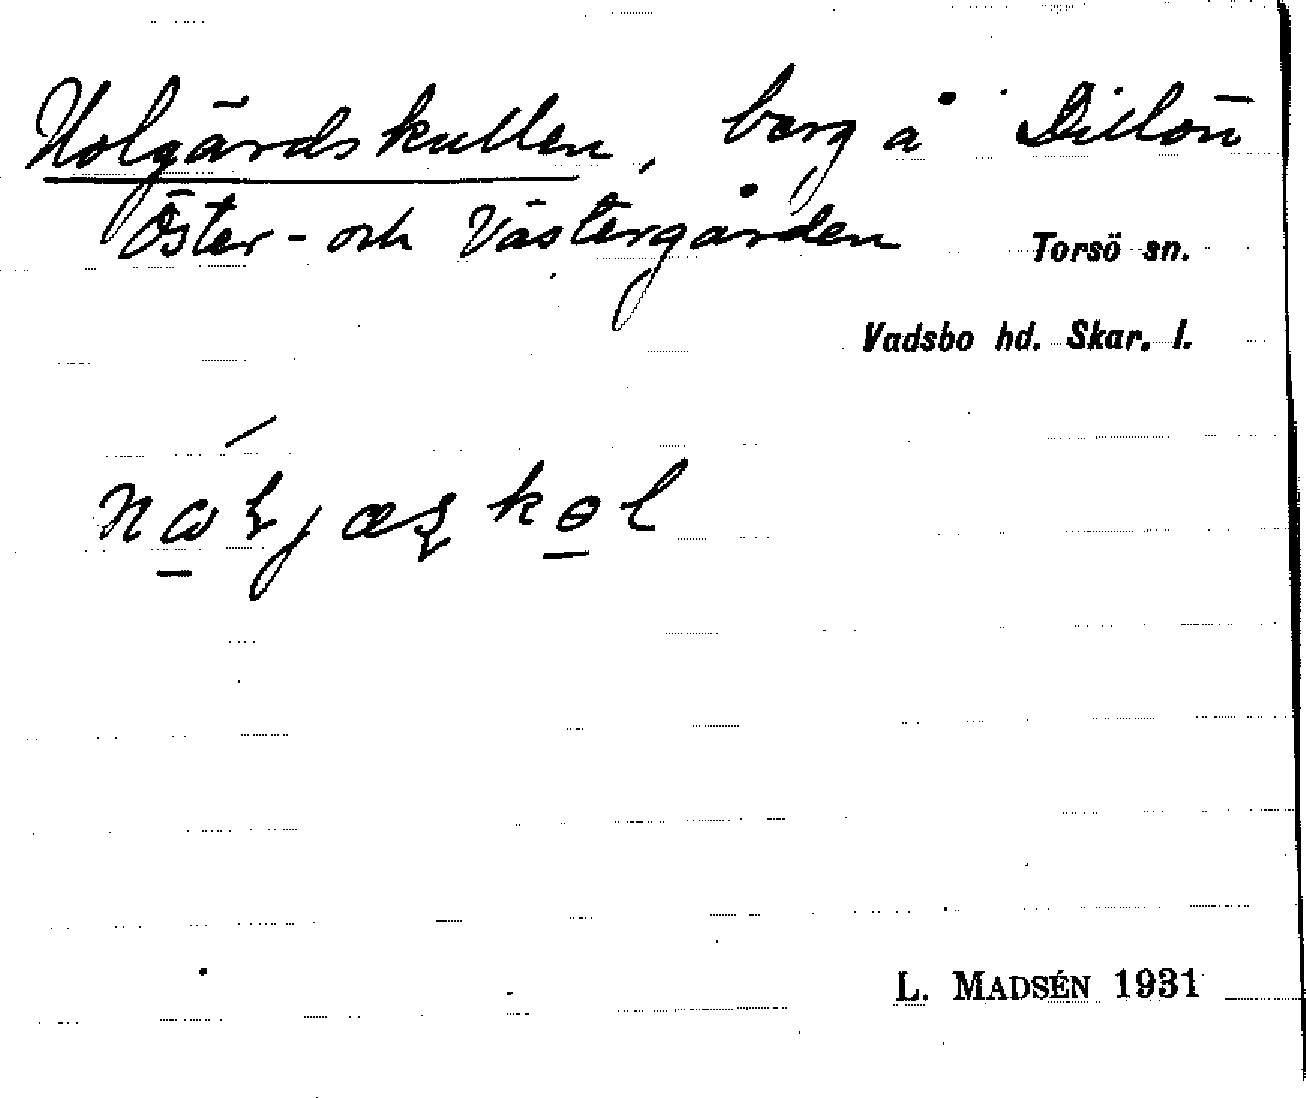 Holgärdskullen, berg å Dillön
Öster- och Västergården Torsö sn.
Vadsbo hd. Skar. l.
L. MADSÉN 1931